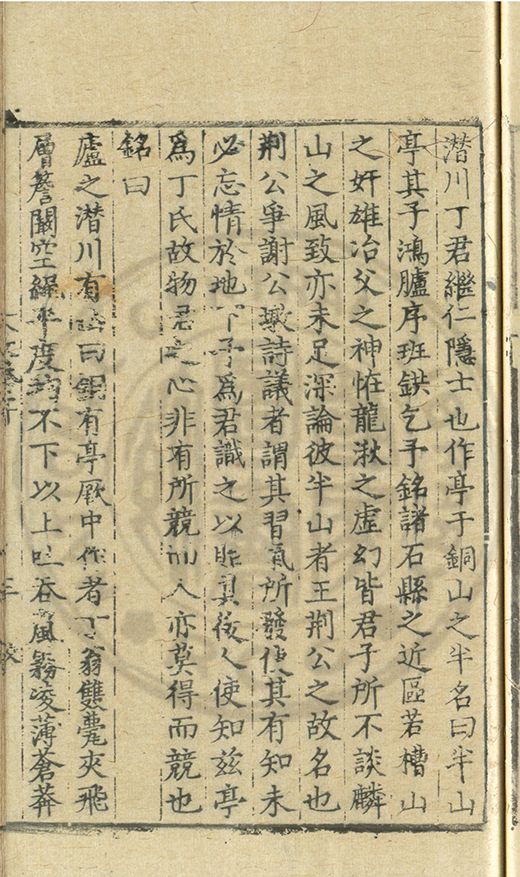 潛川丁君繼仁隱士也作亭于銅山之半名曰半山
亭其子鴻臚序班鉷乞予銘諸石縣之近區若槽山
之奸雄冶父之神怪龍湫之虛幻皆君子所不談麟
山之風致亦未足深論彼半山者王荆公之故名也
荆公爭謝公墩詩議者謂其習氣所發使其有知未
必忘情於地下予爲君識之以詔後人使知兹亭
爲丁氏故物君之心非有所競而人亦莫得而競也
銘曰
廬之潛川有山曰銅有亭厥中作者丁翁雙甍夾飛
層簷闞空繩平度均不下以上吐吞風霧凌薄蒼莽